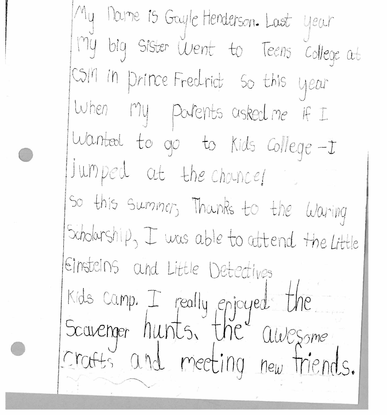 My name is Gayle Henderson. Last year
My big Sister Went to Teens College at
CSM in Prince Fredrict So this year
When My Parents asked me if I
Wanted to go to Kids College - I
jumped at the chance!
So this Summer, Thanks to the Waring
Scholarship, I was able to attend the Little
Einsteins and Little Detectives
Kids Camp. I really enjoyed the
Scavenger hunts, the awesome
crafts and meeting new friends.